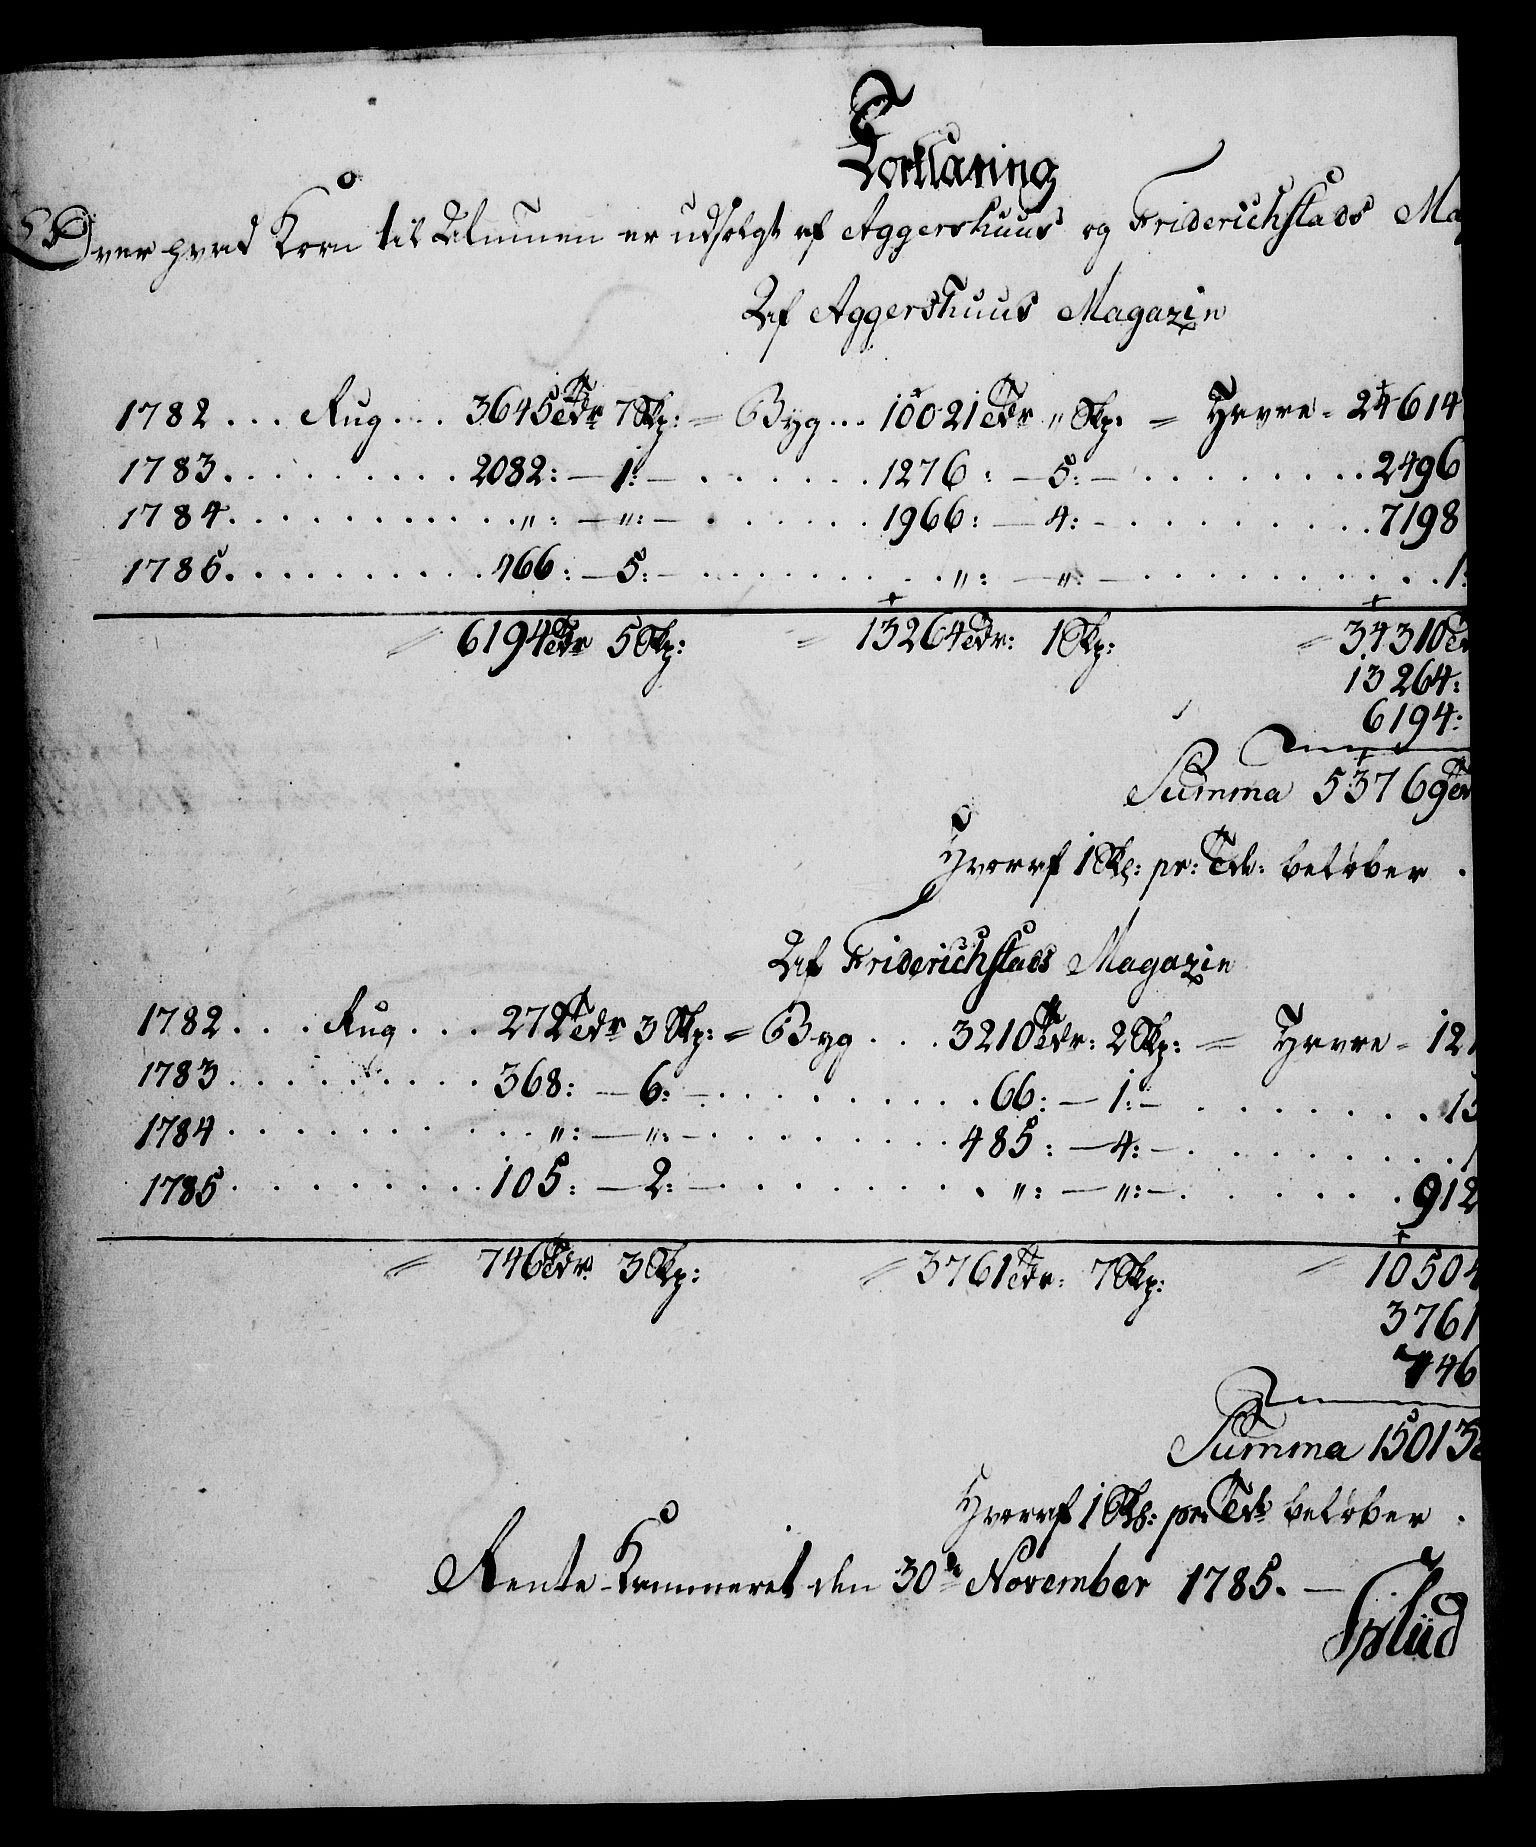 Forklaring
Over hvad Korn til Almuen er udsolgt af Aggershuus og Friderichstads Ma
Af Aggershuus Magazin
1782 ... Rug ... 3645 Tdr 7 Skp: = Byg ... 10021 Tdr " Skp: = Havre - 24614
1783 . . . . . . . . . 2082: — 1: — . . . . . . 1276: — 5: — . . . . . . . . . 2496
1784 . . . . . . . . . ": — ": — . . . . . . 1966: — 4: — . . . . . . . . . 7198
1785 . . . . . . . . . 466: — 5: — . . . . . . ": — ": — . . . . . . . . . 1:
= 6194 Tdr 5 Skp: = 13264 Tdr: 1 Skp: = 34310 Td
13264:
6194:
Summa 53769 Td
Hvoraf 1 Sk: pr: Tde: beløber .
Af Friderichstads Magazin
1782 . . . Rug . . . 272 Tdr 3 Skp: = Byg . . . 3210 Tdr: 2 Skp: = Havre - 121
1783 . . . . . . . . . 368: — 6: — . . . . . . . . 66: — 1: — . . . . . . . 13
1784 . . . . . . . . . ": — ": — . . . . . . . . 485: — 4: — . . . . . . .
1785 . . . . . . . . . 105: — 2: — . . . . . . . . ": — ": — . . . . . . . 912
= 746 Tdr 3 Skp: = 3761 Tdr: 7 Skp: = 10504
3761
746
Summa 15013
Hvoraf 1 Sk: pr Tde beløber .
Rente-Kammeret den 30te November 1785. —